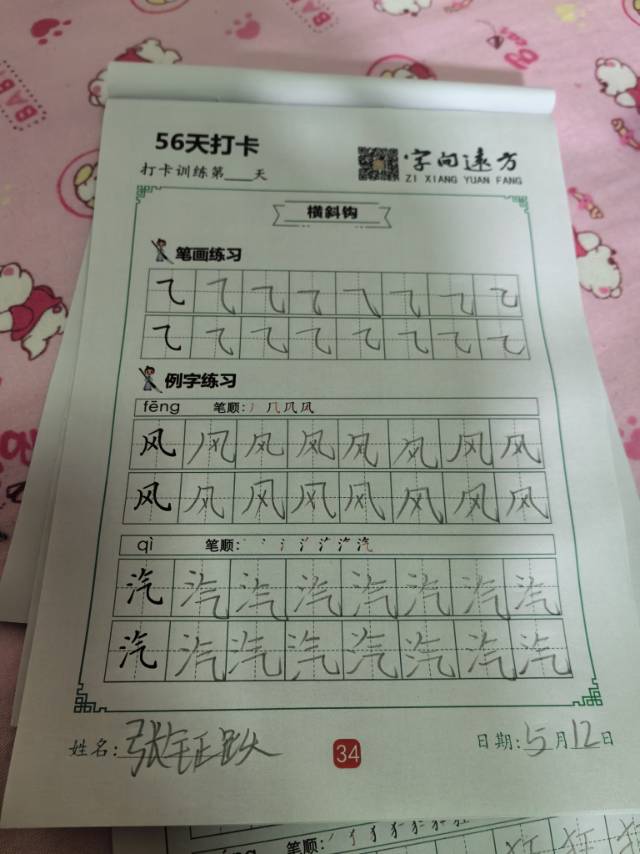 56天打卡
字向远方
ZI XIANG YUAN FANG
打卡训练第___天
横斜钩
笔画练习
例字练习
fēng 笔顺:
风 风 风 风 风 风 风 风
风 风 风 风 风 风 风 风
qì 笔顺:
汽 汽 汽 汽 汽 汽 汽 汽
汽 汽 汽 汽 汽 汽 汽 汽
姓名:张钰跃
34
日期:5月12日
笔顺: